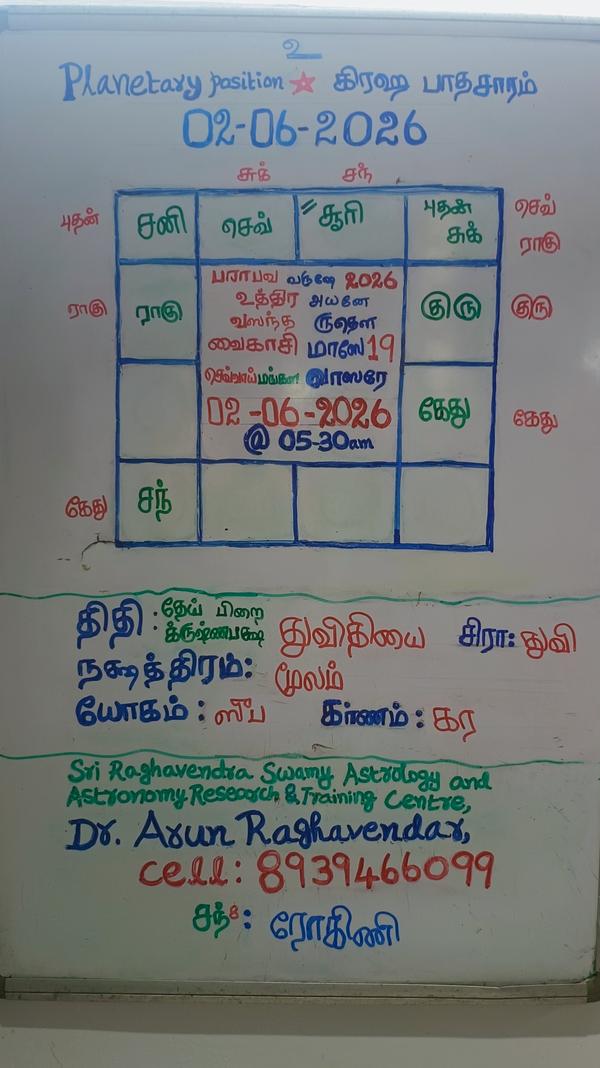 உ
Planetary position ☆ கிரஹ பாதசாரம்
02-06-2026
சுக் சந்
புதன் சனி செவ் சூரி புதன் சுக் செவ் ராகு
ராகு ராகு குரு குரு
கேது கேது
கேது சந்
பராபவ வருஷே 2026
உத்திர அயனே
வஸந்த ருதௌ
வைகாசி மாஸே 19
செவ்வாய் மங்கள வாஸரே
02-06-2026
@ 05-30am
திதி : தேய் பிறை க்ருஷ்ணபக்ஷே துவிதியை சிரா: துவி
நக்ஷத்திரம்: மூலம்
யோகம் : ஸீப கர்ணம் : கர
Sri Raghavendra Swamy Astrology and
Astronomy Research & Training Centre,
Dr. Arun Raghavendar,
cell: 8939466099
சந்8: ரோகிணி